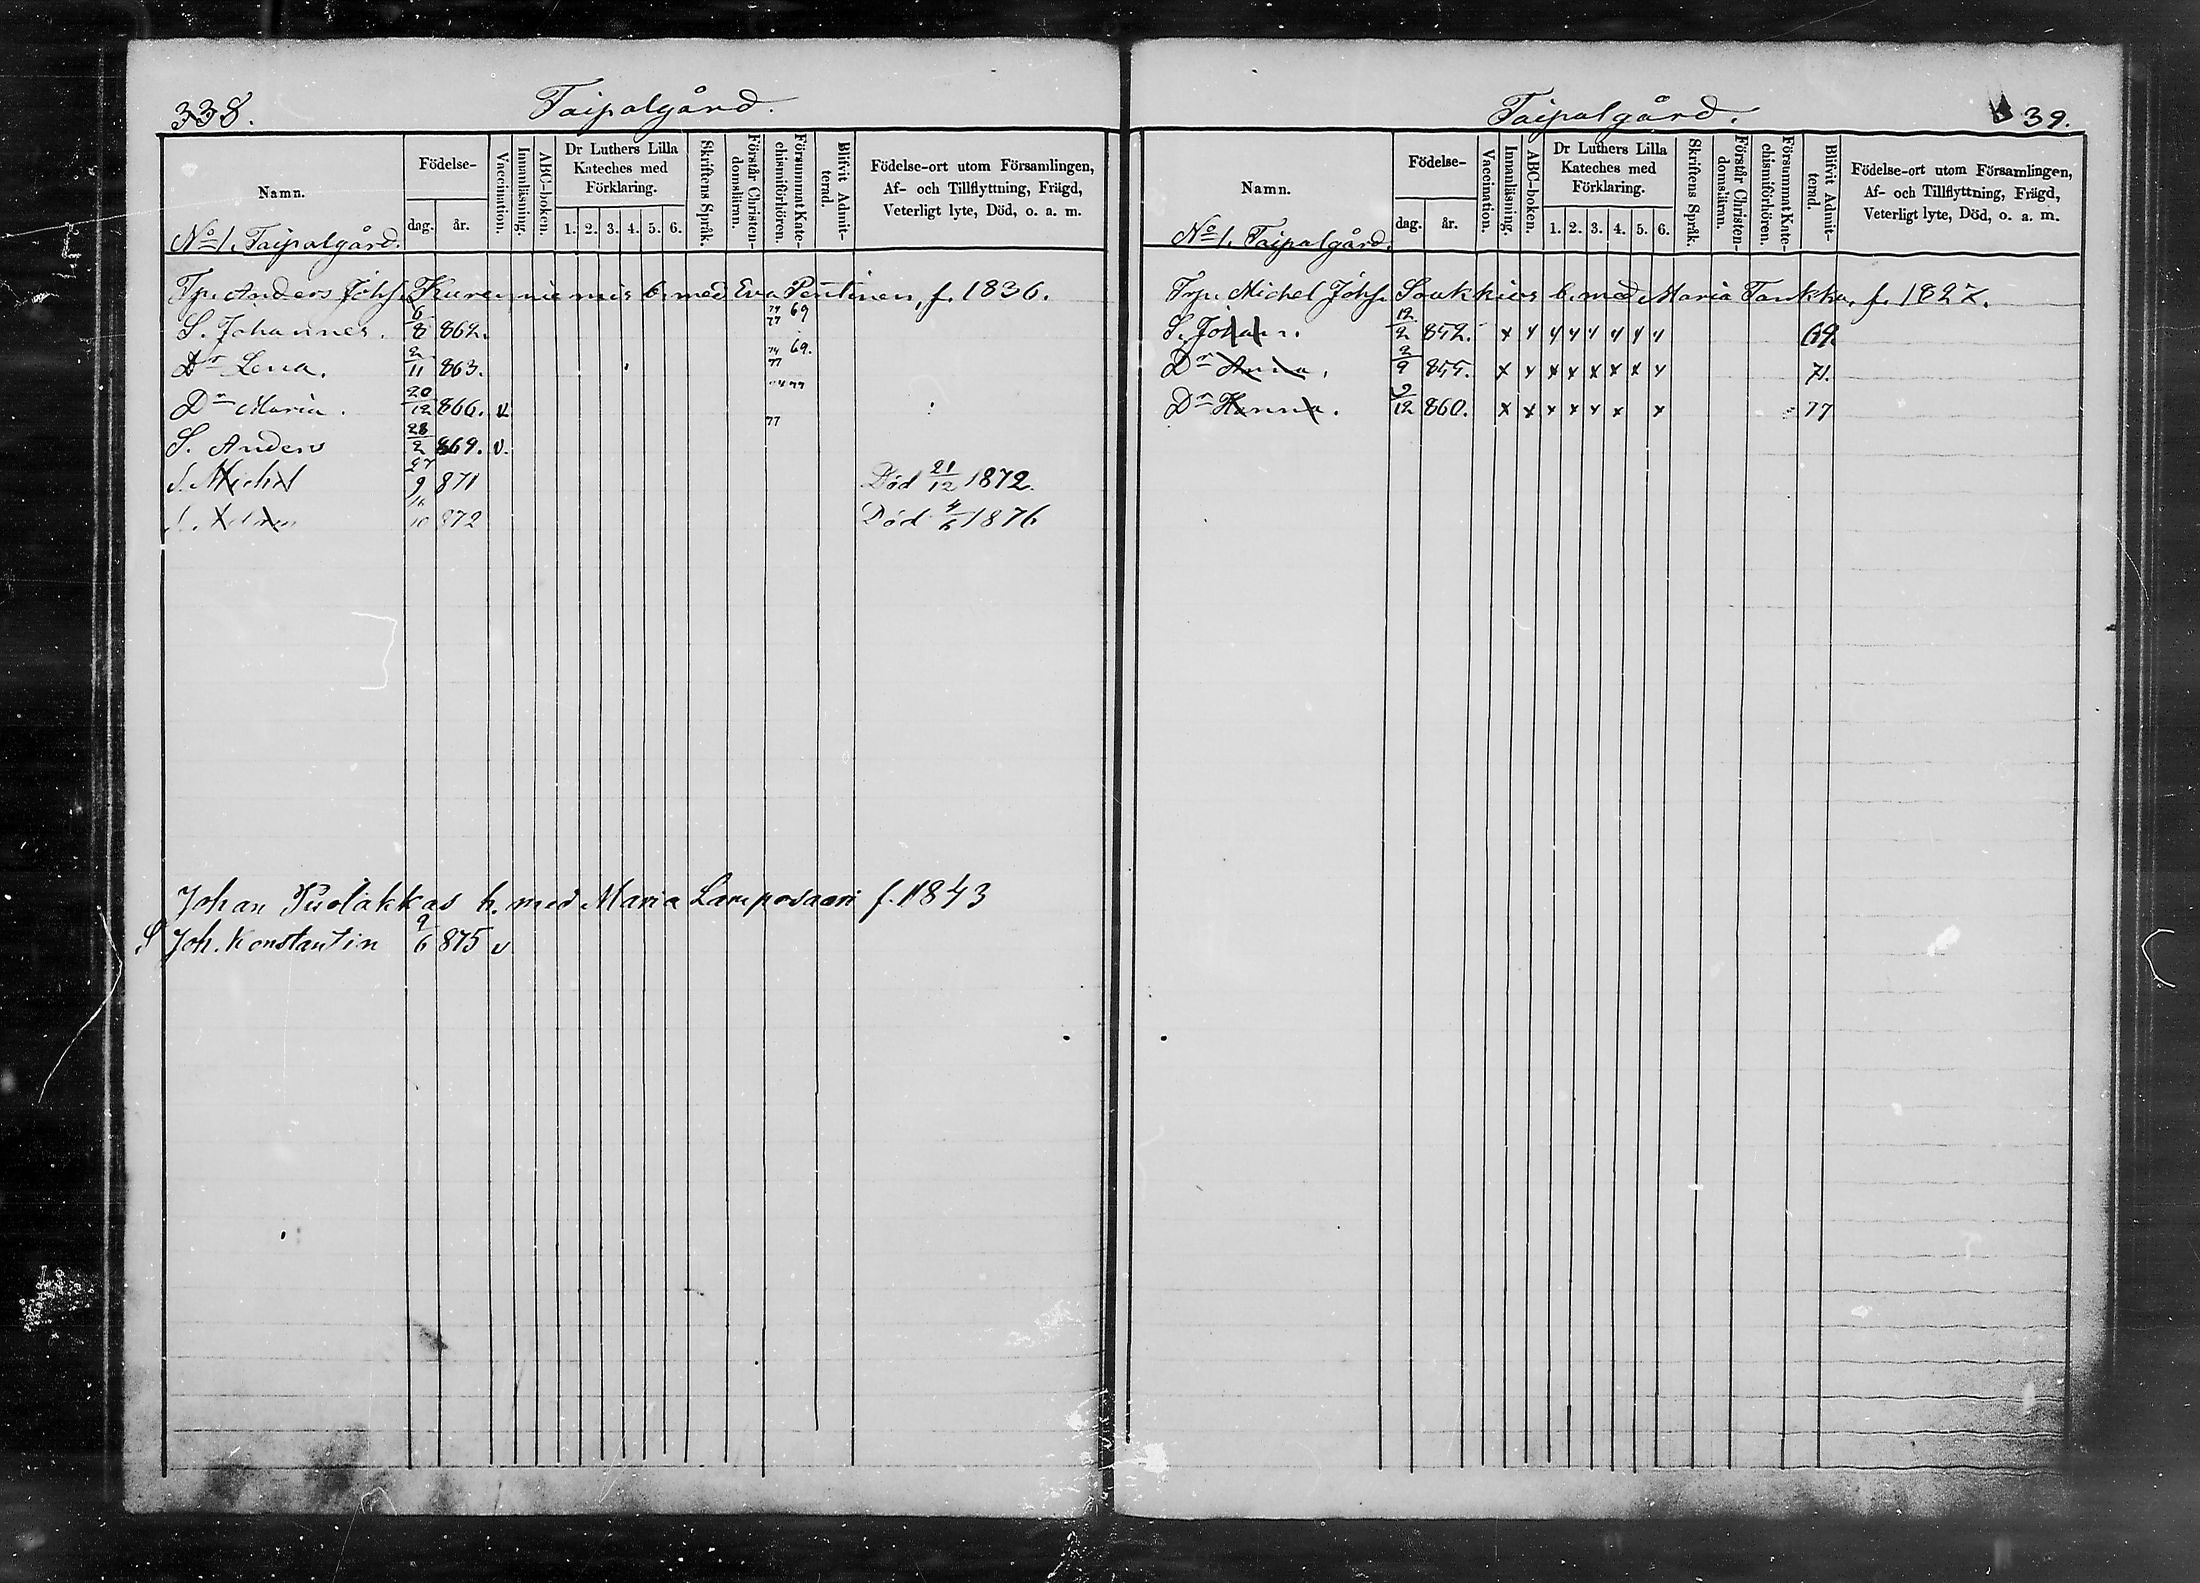 338.
Taipalgård.
Namn.
Födelse-
dag. år.
Vaccination.
Innanläsning.
ABC-boken.
Dr Luthers Lilla Kateches med Förklaring.
1. 2. 3. 4. 5. 6.
Skriftens Språk.
Förstår Christen-domsläran.
Försummat Kate-chismiförhören.
Blifvit Admit-terad.
Födelse-ort utom Församlingen, Af- och Tillflyttning, Frägd, Veterligt lyte, Död, o. a. m.
No 1. Taipalgård.
Tp. Anders Johs. Kurenniemis b. med Eva Penttinen, f. 1836.
S. Johannes. 6/8 862. 74 77 69
Dr Lena. 2/11 863. 74 77 69.
Dr Maria. 20/12 866. v. 74 77
S. Anders 28/2 869. v. 77
S. Michel 27/9 871 Död 21/12 1872.
S. 10 872 Död 4/6 1876
Johan Puolakkas h. med Maria Lamposaari f. 1843
S Joh. Konstantin 9/6 875 v
39.
Taipalgård.
Namn.
Födelse-
dag. år.
Vaccination.
Innanläsning.
ABC-boken.
Dr Luthers Lilla Kateches med Förklaring.
1. 2. 3. 4. 5. 6.
Skriftens Språk.
Förstår Christen-domsläran.
Försummat Kate-chismiförhören.
Blifvit Admit-terad.
Födelse-ort utom Församlingen, Af- och Tillflyttning, Frägd, Veterligt lyte, Död, o. a. m.
No 1. Taipalgård.
Trp. Michel Johs. Soukkios b. med Maria Tankka, f. 1827.
S. Johan. 12/2 852. x x x x x x x x 69.
Dr Anna. 2/9 855. x x x x x x x x 71.
Dr Hanna. 2/12 860. x x x x x x x 77